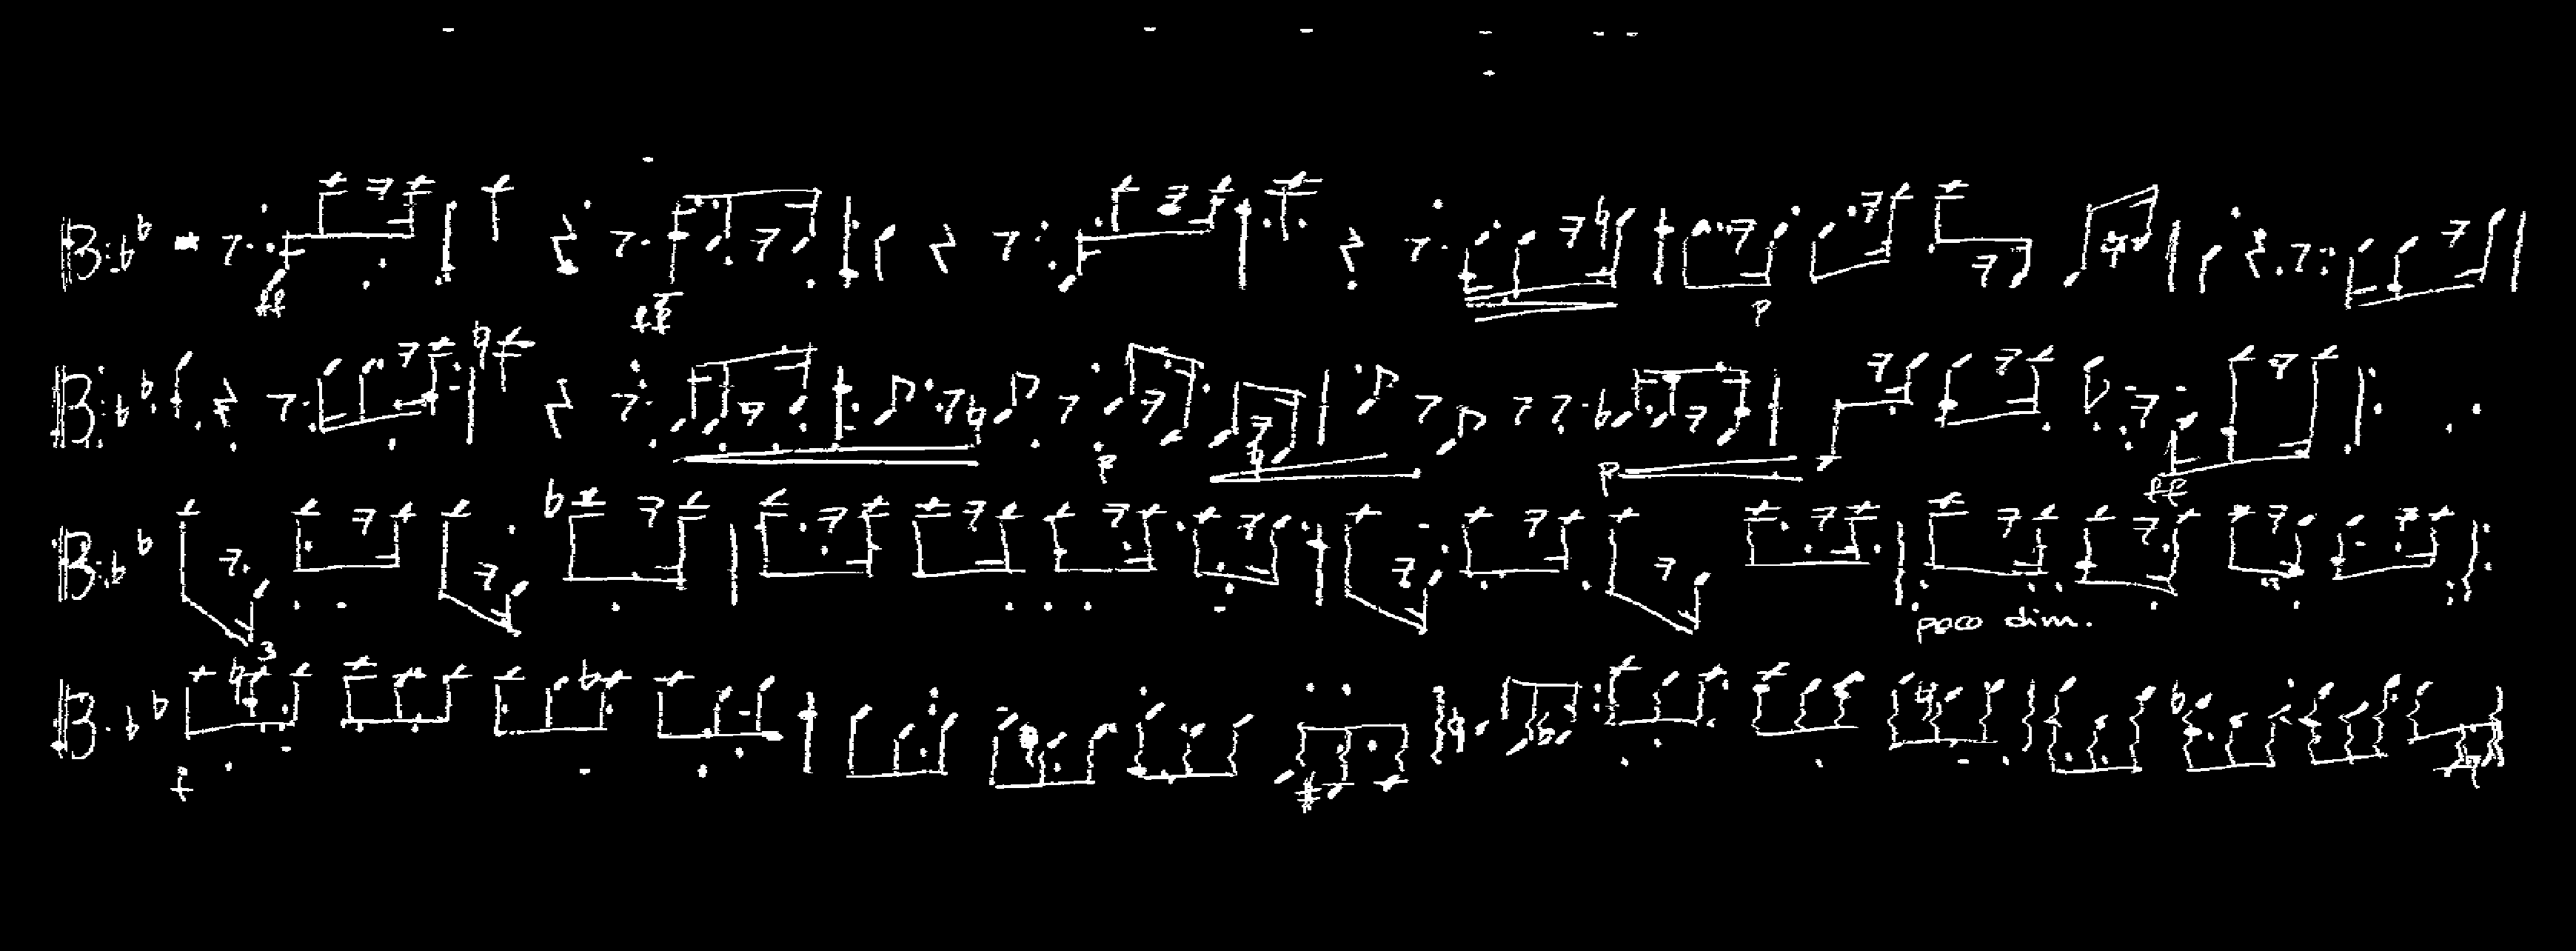 ff
ff
p
p
p
ff
poco dim.
3
f